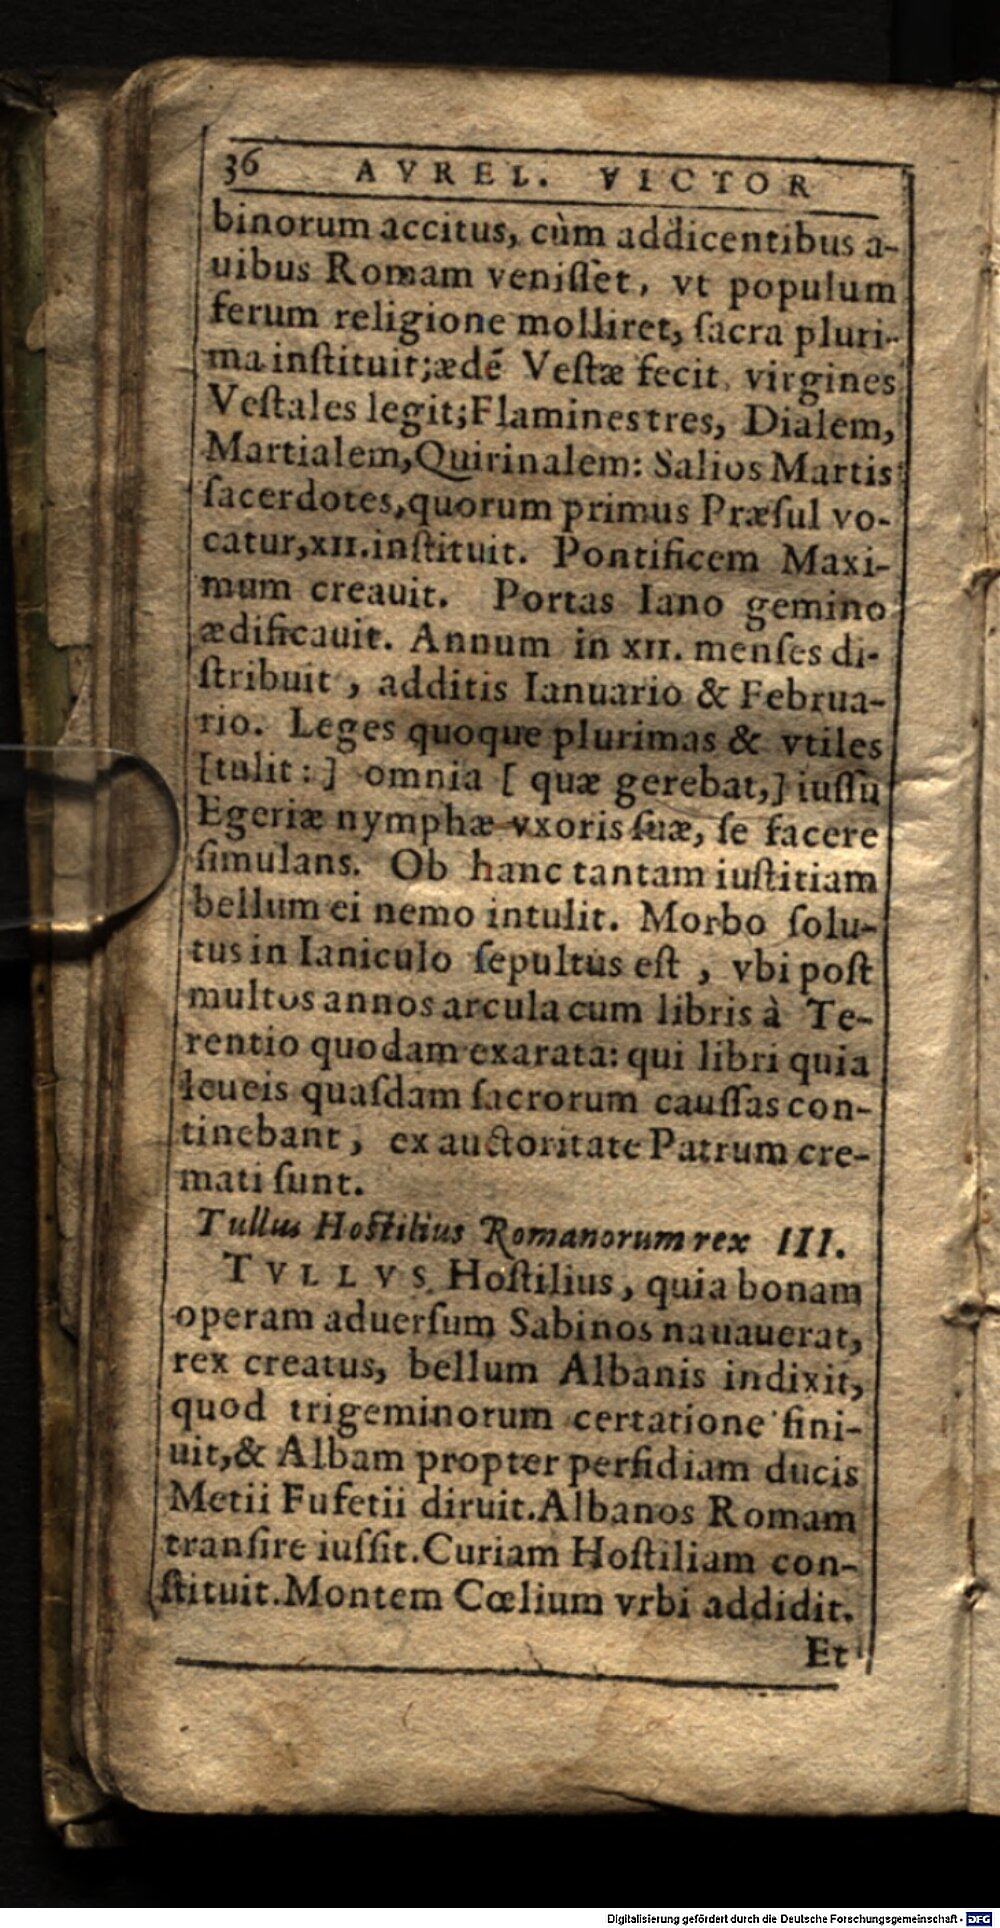 36 AVREL. VICTOR
binorum accitus, cùm addicentibus a-
uibus Romam veniſſet, vt populum
ferum religione molliret, ſacra pluri-
ma inſtituit; ædē Veſtæ fecit, virgines
Veſtales legit; Flamines tres, Dialem,
Martialem, Quirinalem: Salios Martis
ſacerdotes, quorum primus Præſul vo-
catur, XII. inſtituit. Pontificem Maxi-
mum creauit. Portas Iano gemino
ædificauit. Annum in XII. menſes di-
ſtribuit, additis Ianuario & Februa-
rio. Leges quoque plurimas & vtiles
[tulit:] omnia [quæ gerebat,] iuſſu
Egeriæ nymphæ vxoris ſuæ, ſe facere
ſimulans. Ob hanc tantam iuſtitiam
bellum ei nemo intulit. Morbo ſolu-
tus in Ianiculo ſepultus eſt, vbi poſt
multos annos arcula cum libris à Te-
rentio quodam exarata: qui libri quia
leueis quaſdam ſacrorum cauſſas con-
tinebant, ex auctoritate Patrum cre-
mati ſunt.
Tullus Hoſtilius Romanorum rex III.
TVLLVS Hoſtilius, quia bonam
operam aduerſum Sabinos nauauerat,
rex creatus, bellum Albanis indixit,
quod trigeminorum certatione fini-
uit, & Albam propter perfidiam ducis
Metii Fufetii diruit. Albanos Romam
tranſire iuſſit. Curiam Hoſtiliam con-
ſtituit. Montem Cœlium vrbi addidit.
Et
Digitalisierung gefördert durch die Deutsche Forschungsgemeinschaft - DFG